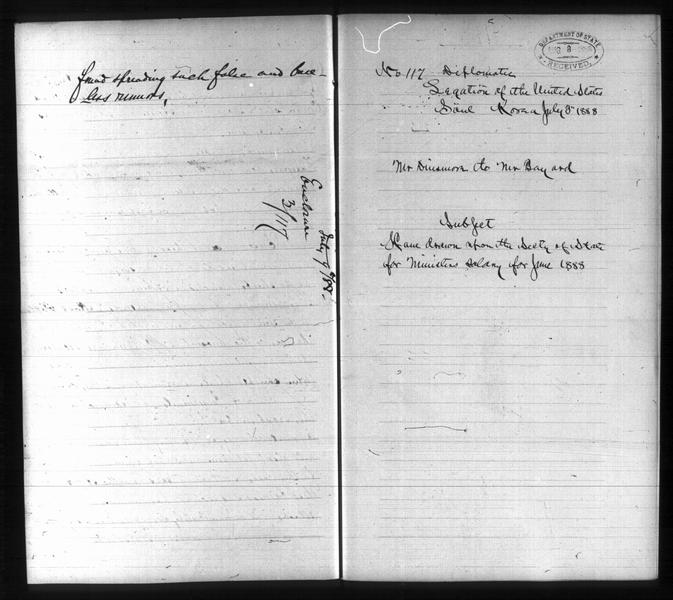 found spreading such false and base-
less rumors,
Enclosure
3/117
July 9/88.
DEPARTMENT OF STATE
RECEIVED
No 117 Diplomatic
Legation of the United States
Söul Korea July 9" 1888
Mr Dinsmore to Mr Bayard
Subject
Have drawn upon the Secty of State
for Ministers salary for June 1888